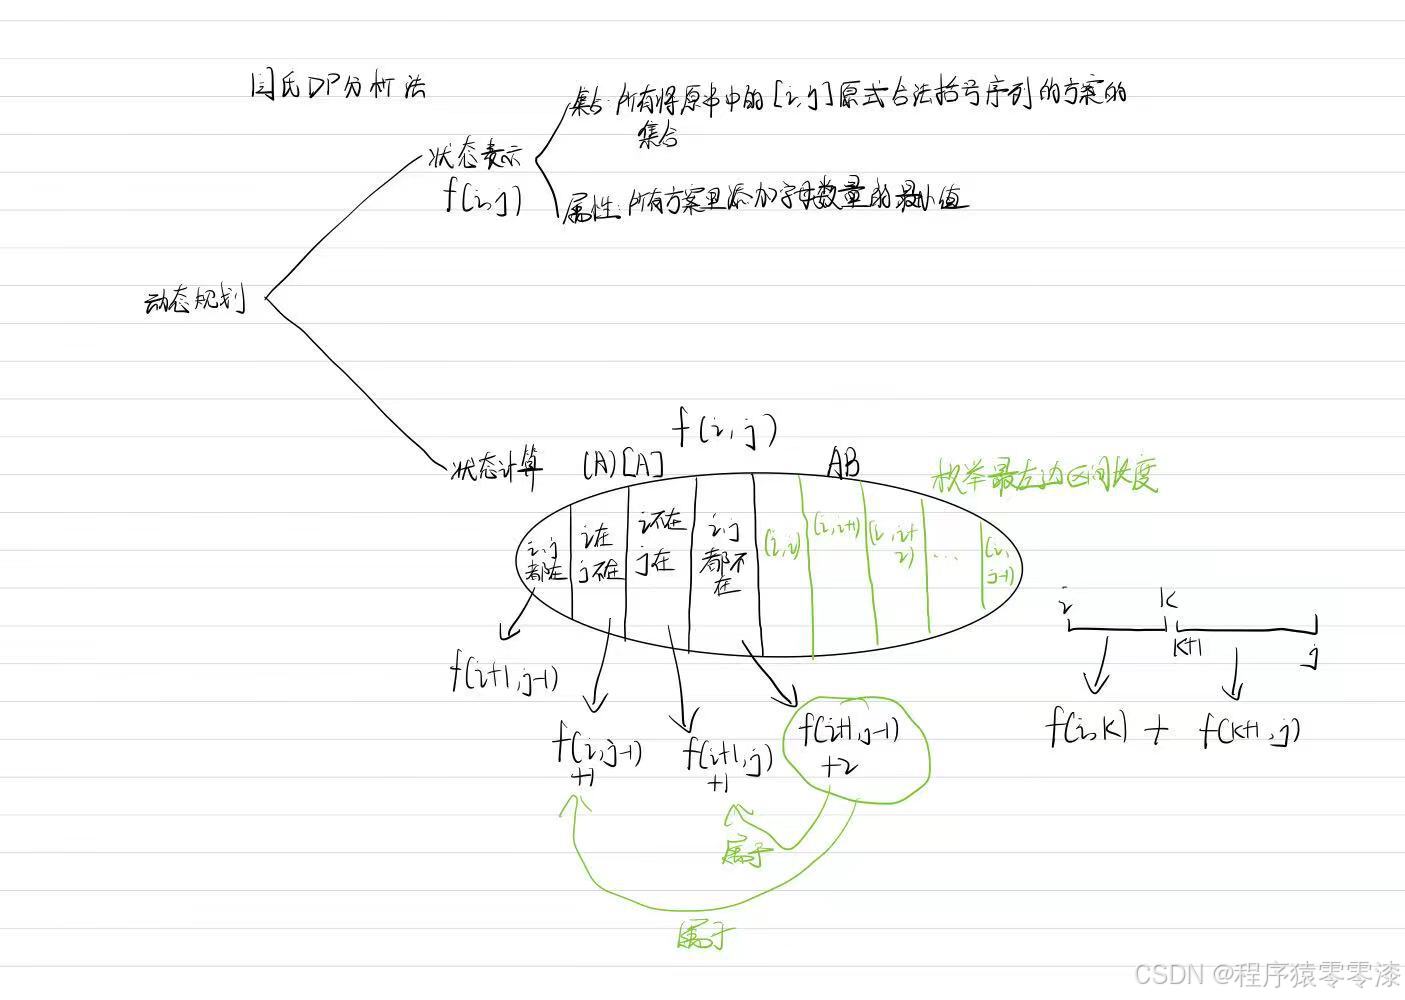 闫氏DP分析法
集合:所有将原串中的[i,j]原式合法括号序列的方案的
集合
状态表示
f(i,j)
属性:所有方案里添加字母数量的最小值
动态规划
f(i,j)
状态计算
(A)[A]
AB
枚举最左边区间长度
i,j都在
i在j不在
i不在j在
i,j都不在
(i,i)
(i,i+1)
(i,i+2)
...
(i,j-1)
i
k
k+1
j
f(i+1,j-1)
f(i,j-1)+1
f(i+1,j)+1
f(i+1,j-1)+2
f(i,k) + f(k+1,j)
属于
属于
CSDN @程序猿零零漆